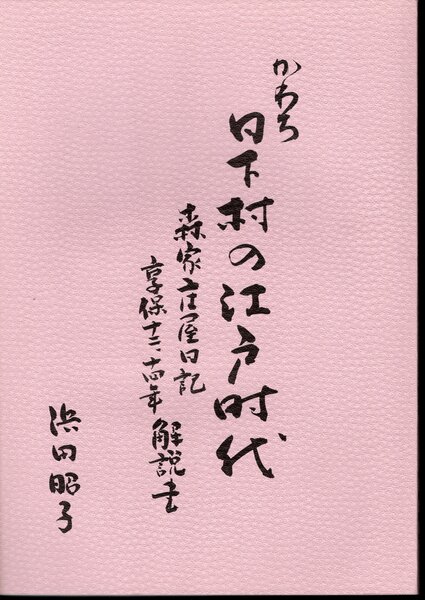 かわち
日下村の江戸時代
森家庄屋日記
享保十二、十四年 解説書
浜田昭子